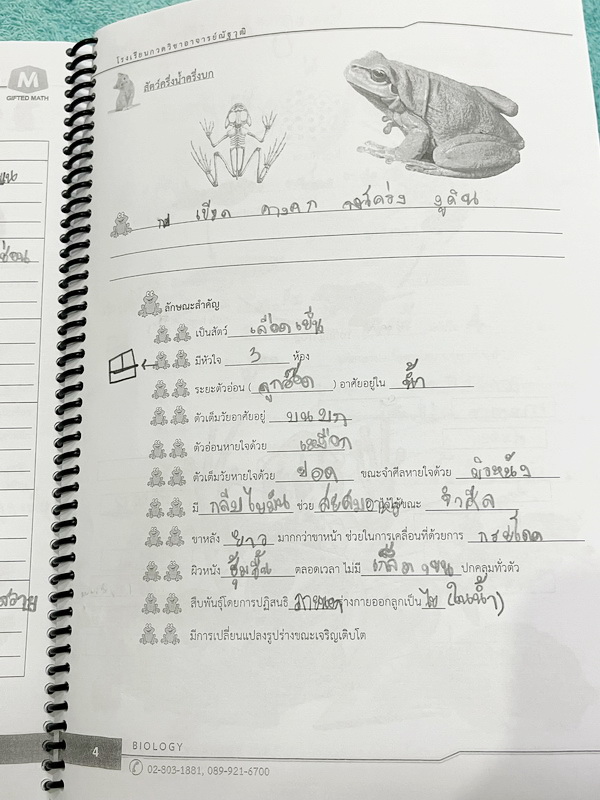 โรงเรียนกวดวิชาอาจารย์ณัฐวุฒิ
M
GIFTED MATH
สัตว์ครึ่งน้ำครึ่งบก
กบ เขียด คางคก จงโคร่ง งูดิน
ลักษณะสำคัญ
เป็นสัตว์ เลือดเย็น
มีหัวใจ 3 ห้อง
ระยะตัวอ่อน ( ลูกอ๊อด ) อาศัยอยู่ใน น้ำ
ตัวเต็มวัยอาศัยอยู่ บนบก
ตัวอ่อนหายใจด้วย เหงือก
ตัวเต็มวัยหายใจด้วย ปอด ขณะจำศีลหายใจด้วย ผิวหนัง
มี กลีบไขมัน ช่วย สะสมอาหาร ไว้ใช้ขณะ จำศีล
ขาหลัง ยาว มากกว่าขาหน้า ช่วยในการเคลื่อนที่ด้วยการ กระโดด
ผิวหนัง ชุ่มชื้น ตลอดเวลา ไม่มี เกล็ด ขน ปกคลุมทั่วตัว
สืบพันธุ์โดยการปฏิสนธิ ภายนอก ร่างกายออกลูกเป็น ไข่ (ในน้ำ)
มีการเปลี่ยนแปลงรูปร่างขณะเจริญเติบโต
4 BIOLOGY
02-803-1881, 089-921-6700